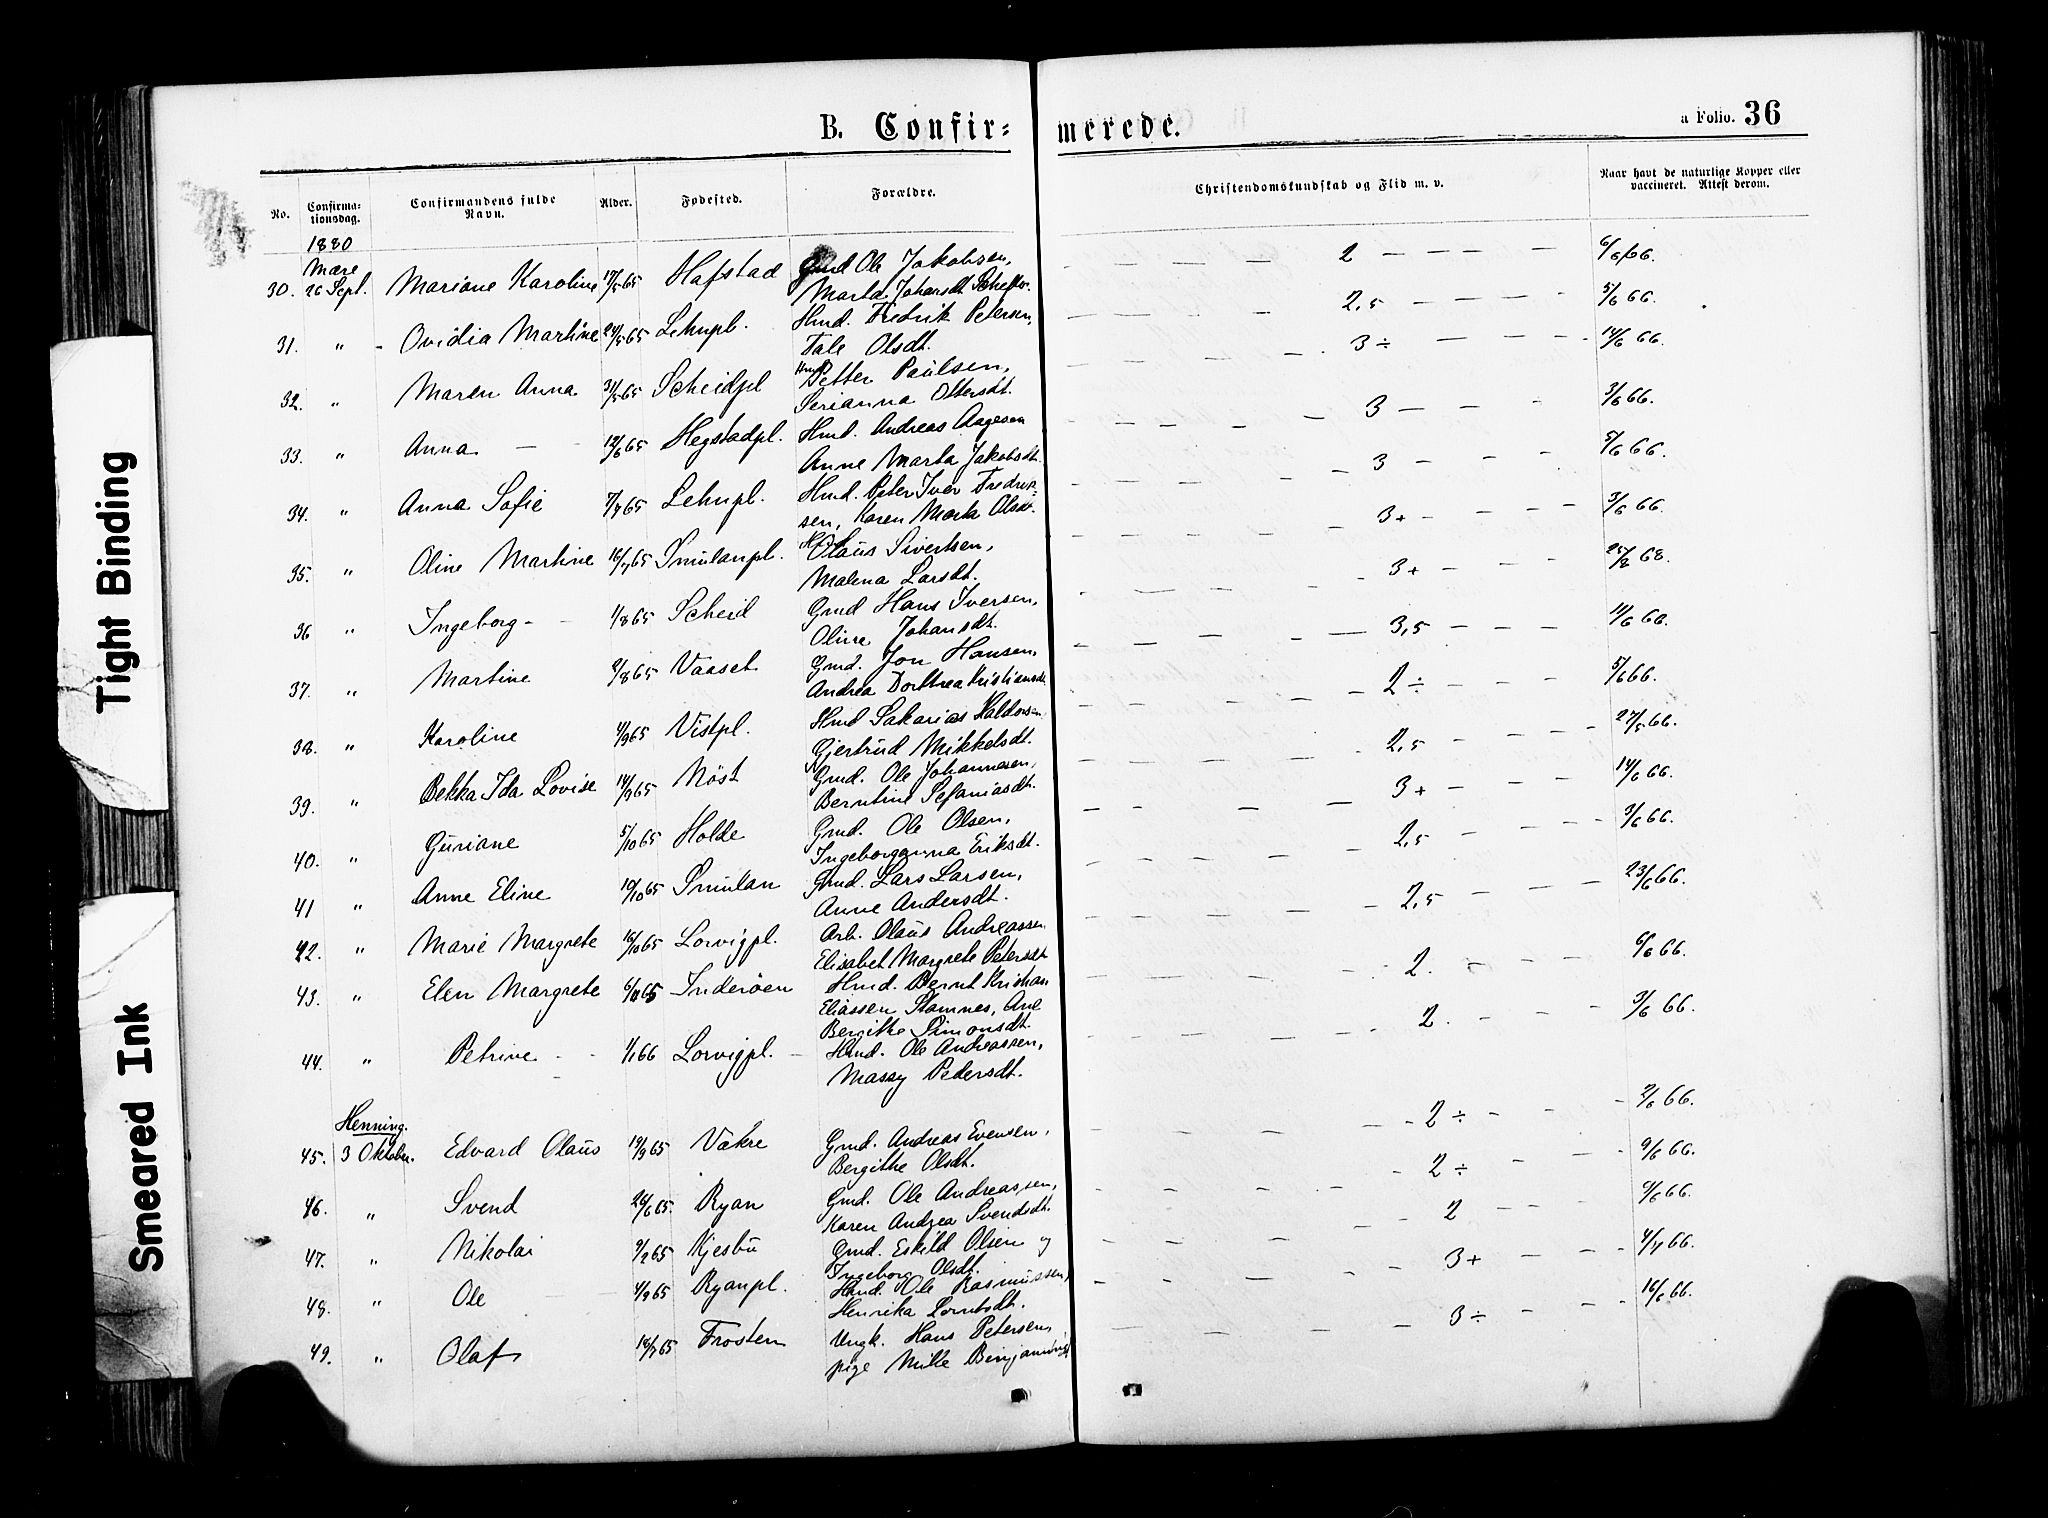 B. Confir=
merede.
a Folio. 36
No.
Confirma-
tionsdag.
Confirmandens fulde
Navn.
Alder.
Fødested.
Forældre.
Christendomskundskab og Flid m. v.
Naar havt de naturlige Kopper eller
vaccineret. Attest derom.
1880
Mære
30. 26 Sept. Mariane Karoline 17/5 65 Hafstad Gmd Ole Jakobsen,
Marta Johansdt.
2 — — — — 6/6 66.
31. " - Ovidia Martine 24/5 65 Lehnpl. Hmd. Fredrik Petersen,
Tale Olsdt.
2,5 — — — — 5/6 66.
32. " Maren Anna 31/5 65 Scheidpl Hmd Petter Paulsen,
Serianna Ottersdt.
3 ÷ — — — 14/6 66.
33. " Anna — 12/6 65 Hegstadpl. Hmd. Andreas Aagesen
Anne Marta Jakobsdt.
3 — — — 3/6 66.
34. " Anna Sofie 7/7 65 Lehnpl. Hmd. Peter Iver Fredrik-
sen, Karen Marta Olsdt.
3 — — — 5/6 66.
35. " Oline Martine 16/7 65 Smulanpl. Olaus Sivertsen,
Malena Larsdt.
3+ — — — 3/6 66.
36 " Ingeborg - 1/8 65 Scheid Gmd Hans Iversen,
Oline Johansdt.
3+ — — — 25/8 68.
37. " Martine 2/8 65 Vaaset Gmd. Jon Hansen,
Andrea Dorthea Kristiansdt.
3,5 — — — 11/6 66.
38. " Karoline 4/9 65 Vistpl. Hmd Sakarias Haldorsen
Gjertrud Mikkelsdt.
2 ÷ — — — 5/6 66.
39. " Bekka Ida Lovise 14/9 65 Møst Gmd. Ole Johannesen,
Berntine Sefaniasdt.
2,5 — — — 27/5 66.
40. " Guriane 5/10 65 Holde Gmd. Ole Olsen,
Ingeborganna Eriksdt.
3+ — — — 14/6 66.
41 " Anne Eline 10/10 65 Smulan Gmd. Lars Larsen,
Anne Andersdt.
2,5 — — — 3/6 66.
42. " Marie Margrete 16/10 65 Lorvigpl. Arb. Olaus Andreassen
Elisabet Margrete Petersdt
2,5 — — — 23/6 66.
43. " Elen Margrete 6/11 65 Inderøen Hmd. Bernt Kristian
Eliassen Stamnes, Ane
Bergitte Simonsdt.
2. — — — 6/6 66.
44. " Petrine - - 1/1 66 Lorvigpl. — Hmd. Ole Andreassen,
Massy Pedersdt.
2. — — — 3/6 66.
Henning.
45. 3 Oktober. Edvard Olaus 19/9 65 Vakre Gmd. Andreas Evensen,
Bergithe Olsdt.
2 ÷ — — — 2/6 66.
46. " Svend 24/6 65. Ryan Gmd. Ole Andreassen,
Karen Andrea Svendsdt.
2 ÷ — — — 9/6 66.
47. " Nikolai 9/2 65 Kjesbu Gmd. Eskild Olsen og
Ingeborg Olsdt.
2 — — — 9/6 66.
48. " Ole 4/9 65 Ryanpl. Hmd. Ole Rasmussen,
Henrika Lorntsdt.
3+ — — — 4/7 66.
49. " Olaf 18/7 65 Frosten Ungk. Hans Petersen,
pige Mille
3 ÷ — — — 16/6 66.
Tight Binding
Smeared Ink